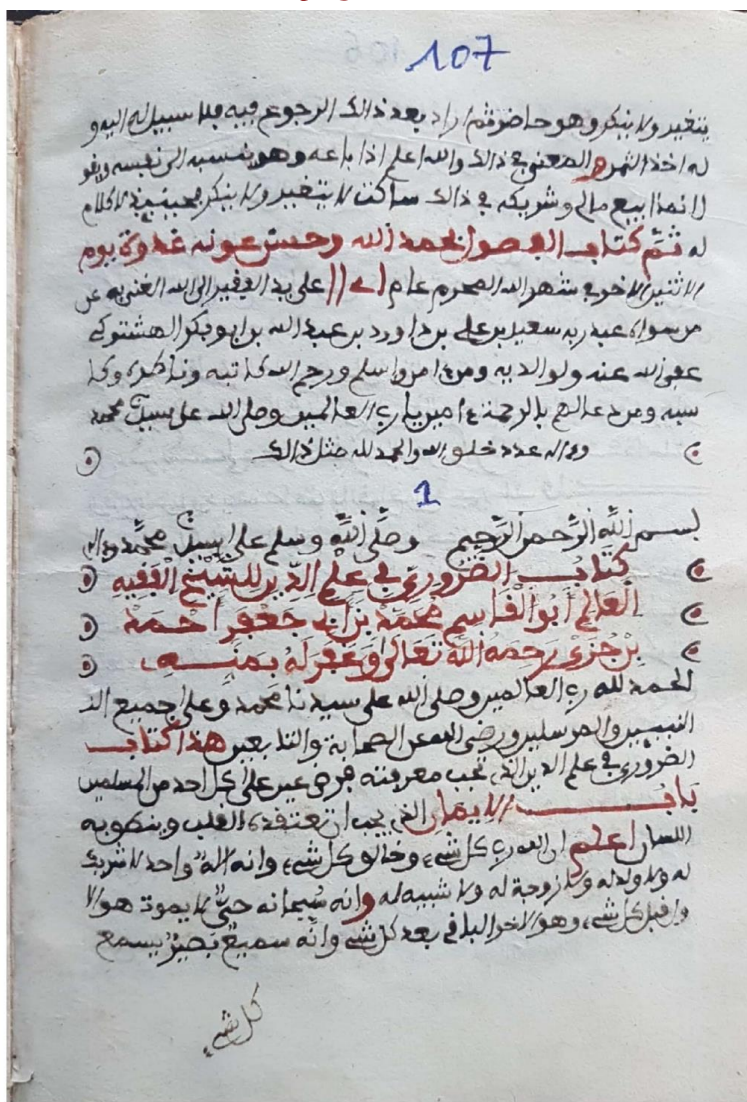 107
يتغير ولا ينكر وهو حاضر ثم اراد بعد ذالك الرجوع فيه فلا سبيل له اليه و
له اخذ الثمن والمعنى في ذالك والله اعلم اذا باعه وهو ينسبه الى نفسه ويقو
ل انما ابيع مالي وشريكه في ذالك ساكت لا يتغير ولا ينكر
له تم كتاب الفصول بحمد الله وحسن عونه غدوة يوم
الاثنين الاخر في شهر الله المحرم عام على يد الفقير الى الله الغني به عن
من سواه عبد ربه سعيد بن علي بن داورد بن عبد الله بن ابو بكر الهشتوكي
عفى الله عنه ولوالديه ومن ءامن واسلم ورحم الله كاتبه وناظره وكا
سبه ومن دعا لهم بالرحمة ءامين يا رب العالمين وصلى الله على سيدنا محمد
وءاله عدد خلق الله والحمد لله مثل ذالك
1
بسم الله الرحمن الرحيم وصلى الله وسلم على سيدنا محمد وءاله
كتاب الضروري في علم الدين للشيخ الفقيه
العالم أبو القاسم محمد بن أبي جعفر أحمد
بن جزي رحمه الله تعالى وغفر له بمنه
الحمد لله رب العالمين وصلى الله على سيدنا محمد وعلى جميع
النبيين والمرسلين ورضي الله عن الصحابة والتابعين هذا كتاب
الضروري في علم الدين الذي تجب معرفته فرض عين على كل احد من المسلمين
باب الايمان الذي يجب ان تعتقده القلب وينطق به
اللسان اعلم ان الله رب كل شيء وخالق كل شيء وانه اله واحد لا شريك
له ولا ولد له ولا زوجة له ولا شبيه له وانه سبحانه حي لا يموت هو الا
ول قبل كل شيء وهو الاخر الباقي بعد كل شيء وانه سميع بصير يسمع
كل شيء